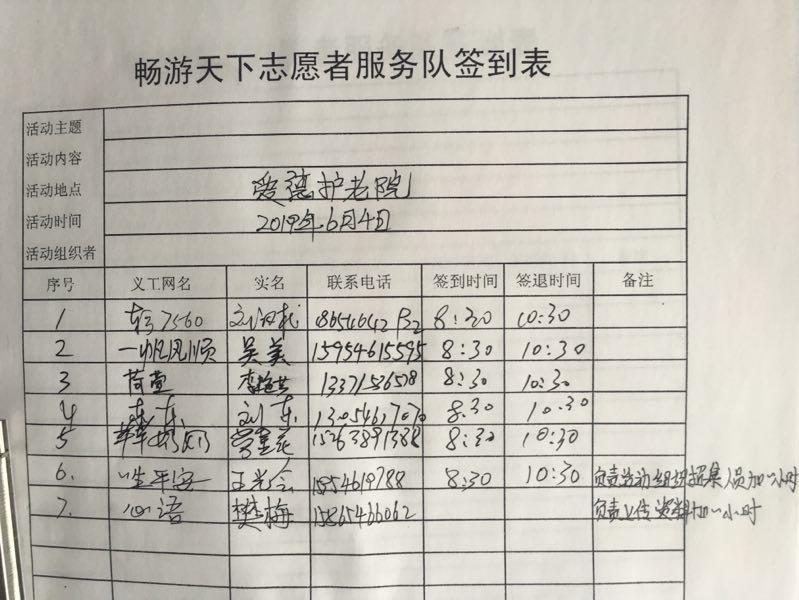 畅游天下志愿者服务队签到表
活动主题
活动内容
活动地点 爱德护老院
活动时间 2019年6月4日
活动组织者
序号 义工网名 实名 联系电话 签到时间 签退时间 备注
1 7560 刘 8:30 10:30
2 一帆风顺 吴美 15954615595 8:30 10:30
3 荷萱 8:30 10:30
4 东东 刘东 8:30 10:30
5 15263891388 8:30 10:30
6. 一生平安 王光会 8:30 10:30 负责活动组织召集人员加一小时
7. 心语 樊梅 15865466062 负责上传资料加一小时